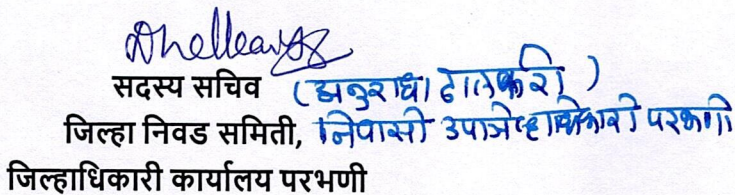 सदस्य सचिव (अनुराधा ढालकरी)
जिल्हा निवड समिती, निवासी उपजिल्हाधिकारी परभणी
जिल्हाधिकारी कार्यालय परभणी